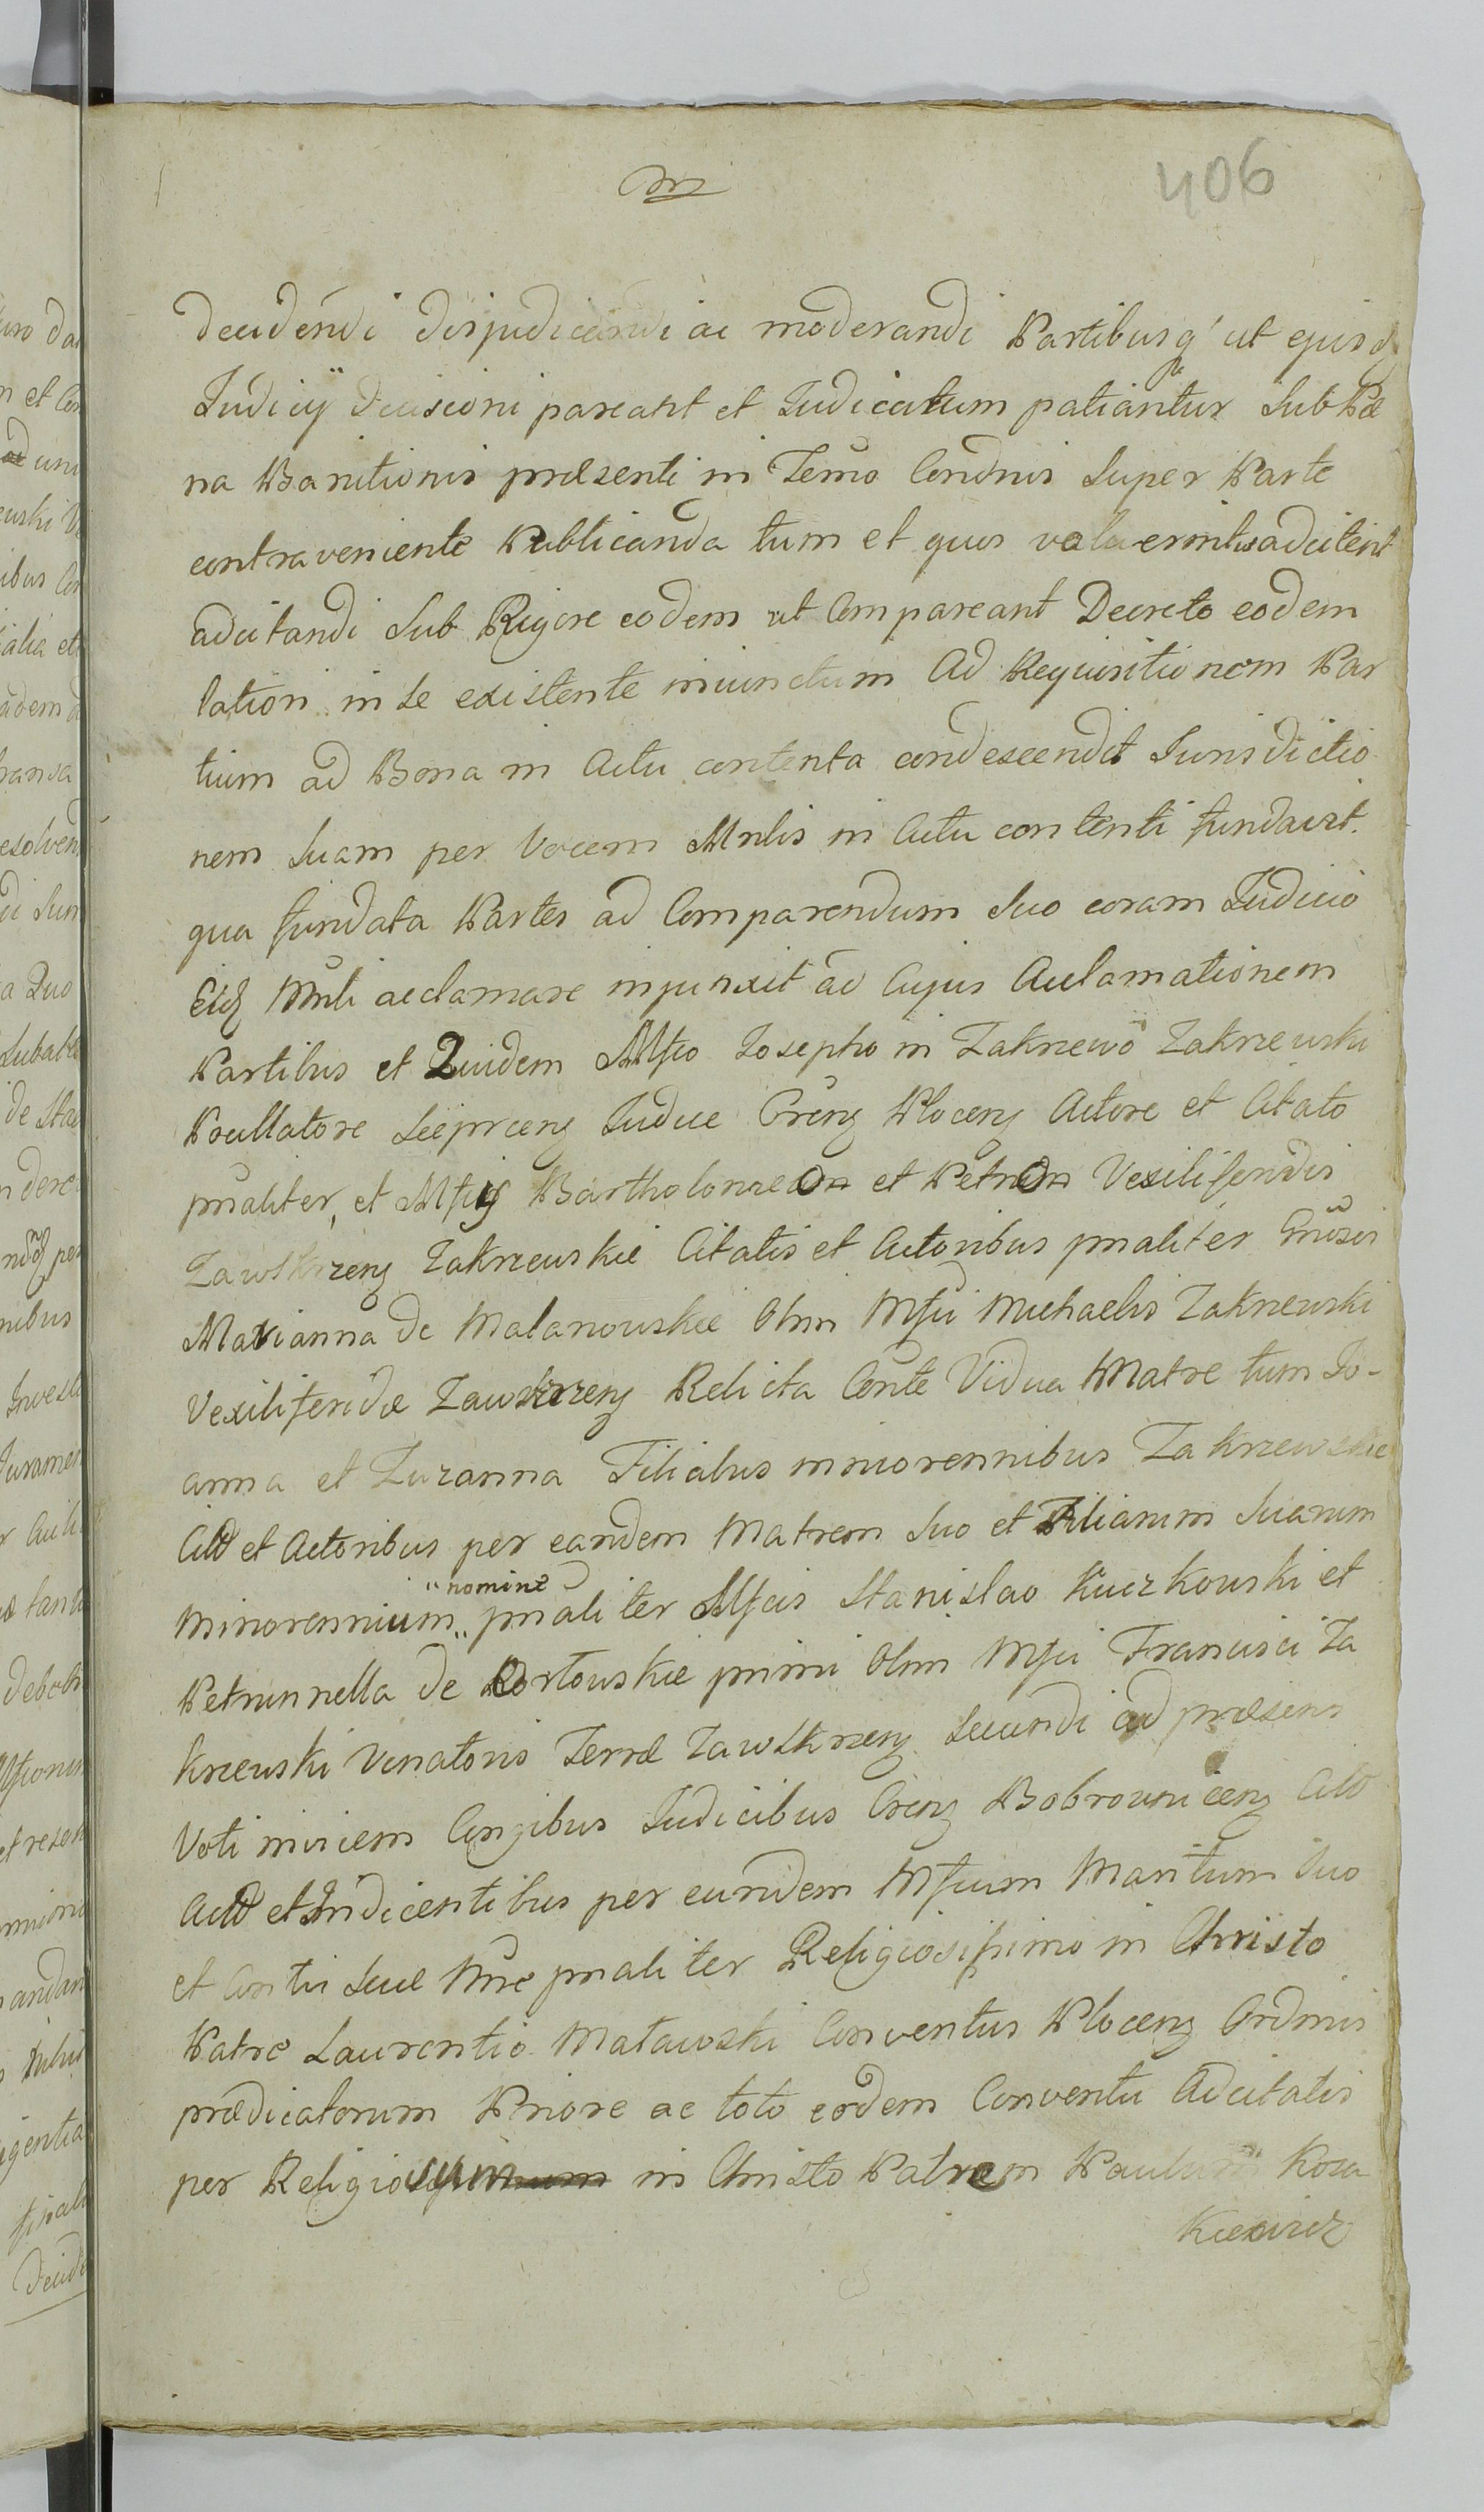 406
decidendi disjudicandi ac moderandi Partibusq' ut ejusd
Judicij decisioni pareant et Judicatum patiantur Sub Pæ
na Banitionis præsenti in Termo Condnis Super Parte
contraveniente Publicanda tum et quos voluerint adcitent
adcitandi Sub Rigore eodem ut Compareant Decreto eodem
lation in se existente iniunctum Ad Requisitionem Par
tium ad Bona in Actu contenta condescendit Jurisdictio
nem Suam per Vocem Mnlis in Actu contenti fundavit.
qua fundata Partes ad Comparendum Suo coram Judicio
Eidq Mnli acclamare injunxit ad Cujus Acclamationem
Partibus et Quidem Mfco Josepho in Zakrzewo Zakrzewski
Pocillatore Sieprceng Judice Greng Ploceng Actore et Citato
pnaliter, et Mfcis Bartholomeo et Petro Vexiliferidis
Zawskrzeng Zakrzewskie Citatis et Actoribus pnaliter Gnosis
Marianna de Malanowskie Olim Mfci Michaelis Zakrzewski
Vexiliferidæ Zawskrzeng Relicta Conte Vidua Matre tum Jo-
anna et Zuzanna Filiabus minorennibus Zakrzewskie
Citt et Actoribus per eandem Matrem Suo et Filiarum Suarum
minorennium „nomine pnaliter Mfcis Stanislao Kuczkowski et
Petrunnella de Bortowskie primi Olim Mfci Francisci Za
krzewski Venatoris Terræ Zawskrzeng Secundi ad præsens
Voti invicem Congibus Judicibus Greng Bobrowniceng Citt
Actt et Indicentibus per eundem Mfcum Maritum Suo
et Contis Suæ Nne pnaliter Religiosissimo in Christo
Patre Laurentio Matawski Conventus Ploceng Ordinis
prædicatorum Priore ac toto eodem Conventu Adcitatis
per Religiosum in Christo Patrem Paulum Koza
Kiewicz